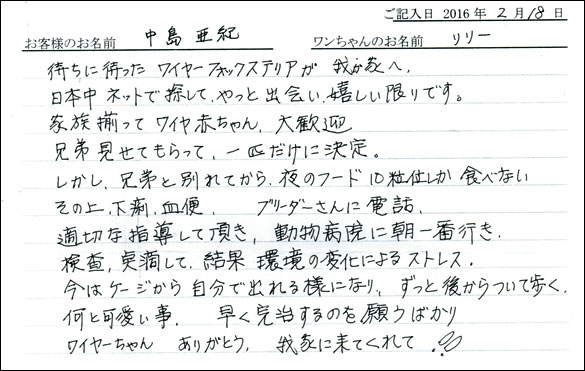 ご記入日 2016年 2月 18日
お客様のお名前 中島 亜紀 ワンちゃんのお名前 リリー
待ちに待った ワイヤーフォックステリアが 我が家へ、
日本中 ネットで探して、やっと 出会い、嬉しい限りです。
家族揃って ワイヤ赤ちゃん、大歓迎
兄弟見せてもらって、一匹だけに決定。
しかし、兄弟と別れてから、夜のフード10粒位しか 食べない
その上、下痢、血便、 ブリーダーさんに電話、
適切な指導して頂き、動物病院に朝一番行き、
検査、点滴して、結果 環境の変化によるストレス.
今はゲージから 自分で出れる様になり、ずっと後からついて歩く、
何と可愛い事、 早く完治するのを願うばかり
ワイヤーちゃん ありがとう、 我家に来てくれて